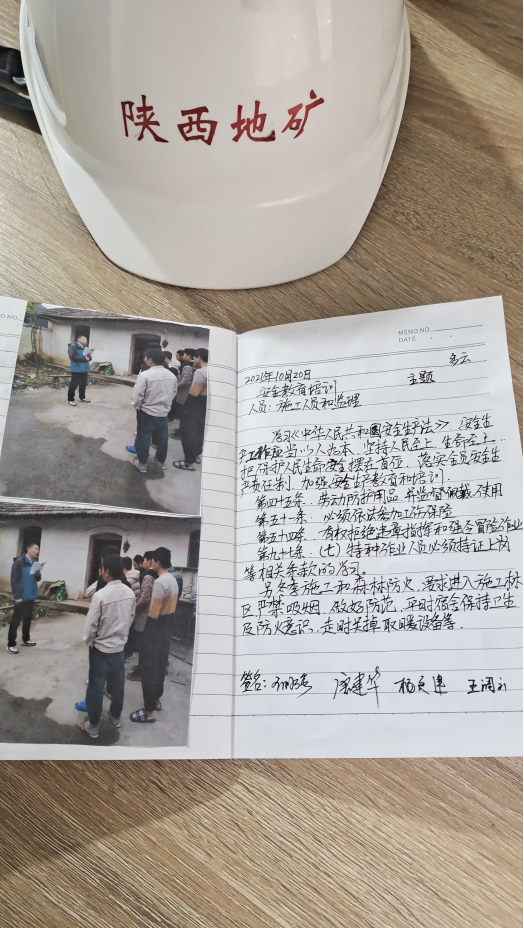 陕西地矿
MEMO NO.
DATE
多云
2021年10月20日 主题
安全教育培训
人员：施工人员和监理
学习《中华人民共和国安全生产法》，安全生
产工作应当以人为本，坚持人民至上，生命至上，
把保护人民生命安全摆在首位，落实全员安全生
产责任制，加强安全生产教育和培训。
第四十五条、劳动防护用品，并监督佩戴、使用
第五十一条、必须依法参加工伤保险
第五十四条、有权拒绝违章指挥和强令冒险作业
第九十七条、（七）特种作业人员必须持证上岗
等相关条款的学习。
另冬季施工和森林防火，要求进入施工林
区严禁吸烟，做好防范，平时宿舍保持卫生
及防火意识，走时关掉取暖设备等。
签名： 建华 杨 王